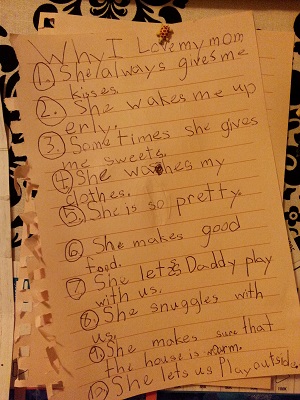 Why I Love my mom
1. She always gives me
kisses.
2. She wakes me up
erly.
3. Some times she gives
me sweets.
4. She washes my
clothes.
5. She is so pretty
6. She makes good
food.
7. She lets Daddy play
with us.
8. She snuggles with
us.
9. She makes sure that
the house is warm.
10. She lets us Play outside.